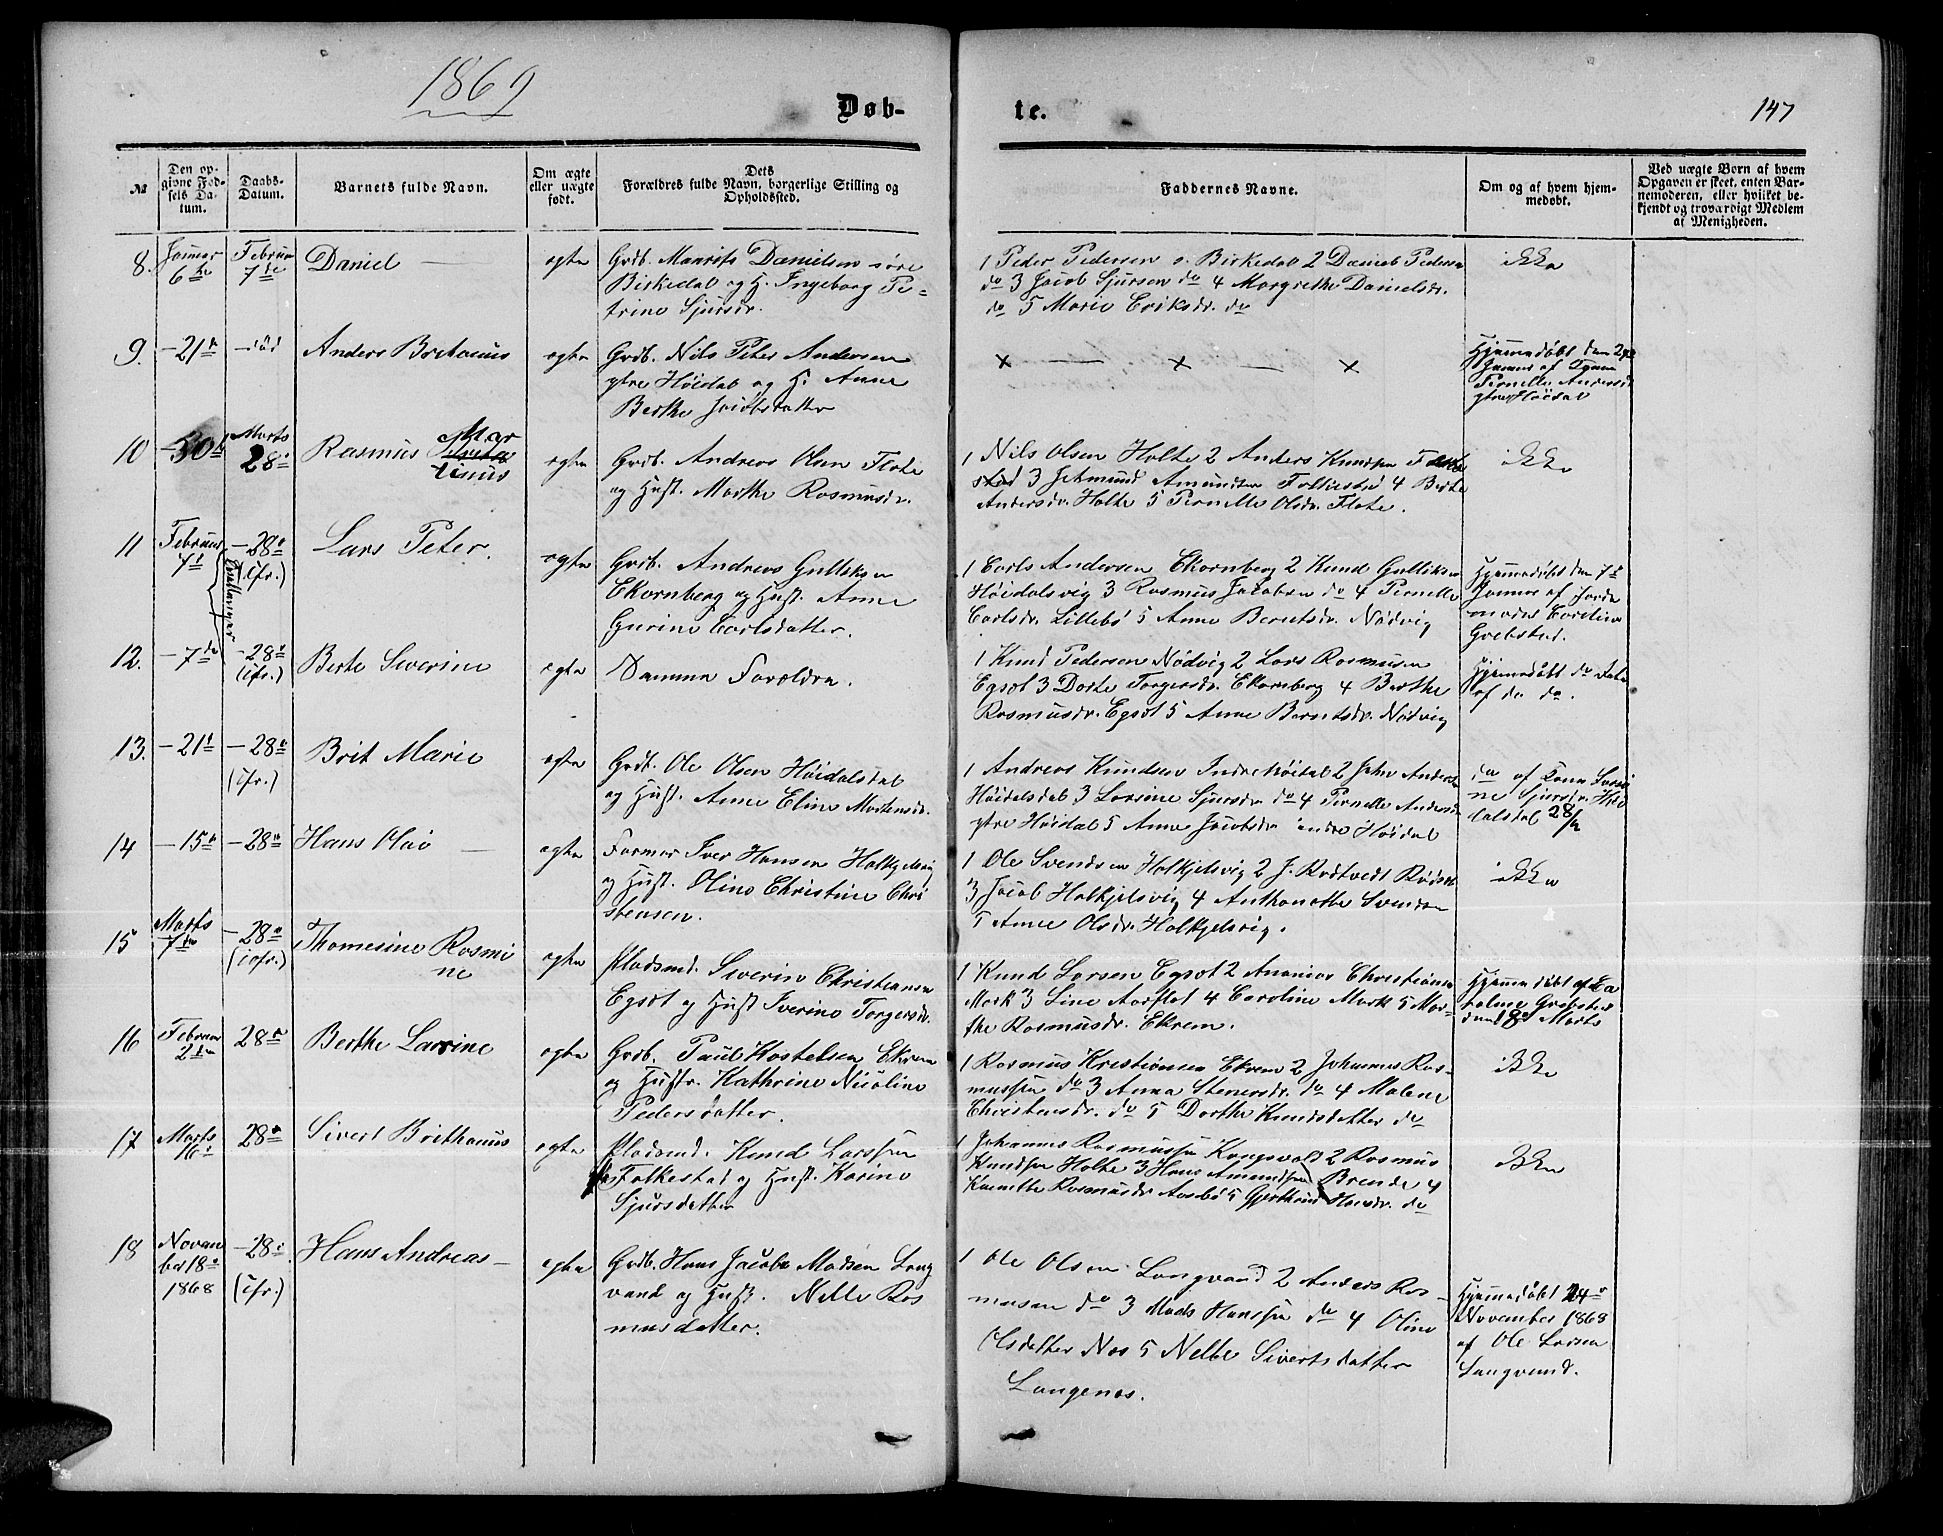 1869
Døb-
te.
147
№
Den op-
givne Fød-
sels Da-
tum.
Daabs-
Datum.
Barnets fulde Navn.
Om ægte
eller uægte
født.
Dets
Forældres fulde Navn, borgerlige Stilling og
Opholdssted.
Faddernes Navne.
Om og af hvem hjem-
medøbt.
Ved uægte Børn af hvem
Opgaven er skeet, enten Bar-
nemoderen, eller hvilket be-
kjendt og troværdigt Medlem
af Menigheden.
8.
Januar
6te
Februar
7de
Daniel
ægte
Grdb. Maurits Danielsen søre
Birkedal og H. Ingeborg Pe-
trine Sjursdr.
1 Peder Pedersen s. Birkedal 2 Daniel Pedersen
do 3 Jacob Sjursen do 4 Margrethe Danielsdr.
do 5 Marie Eriksdr. do
ikke
9.
-21de
Anders Bertinus
ægte
Grdb. Nils Peter Andersen
ytre Høidal og H. Anne
Berthe Jacobsdatter
x — x — x
Hjemmedøbt den
Januar af
Pernille Andersdr
ytre Høidal
10
-30te
Marts
28de
Rasmus Mar
tinus
ægte
Grdb. Andreas Olsen Flote
og Hust. Marthe Rasmusdr.
1 Nils Olsen Holte 2 Anders Knudsen Folke
stad 3 Jetmund Amundsen Folkestad 4 Berte
Andersdr. Holte 5 Pernille Olsdr. Flote.
ikke
11
Februar
7de
-28de
(Cfr.)
Tvillinger
Lars Peter.
ægte
Grdb. Andreas Gulliksen
Ekornberg og Hust. Anne
Gurine Carlsdatter.
1 Carls Andersen Ekornberg 2 Knud Gulliksen
Høidalsvig 3 Rasmus Jacobsen do 4 Pernille
Carlsdr. Lillebø 5 Anne Berntsdr. Nødvig
Hjemmedøbt den 7de
Januar af Jorde
moder Caroline
Grebstad.
12.
-7de
-28de
(Cfr.)
Berte Severine
ægte
Samme Forældre.
1 Knud Pedersen Nødvig 2 Lars Rasmusen
Egsæt 3 Dorte Torgersdr. Ekornberg 4 Berthe
Rasmusdr. Egsæt 5 Anne Berntsdr. Nødvig
Hjemmedøbt do Dato
af do do.
13.
-21de
-28de
(Cfr.)
Brit Marie
ægte
Grdb. Ole Olsen Høidalsdal
og Hust. Anne Eline Mortensdr.
1 Andreas Knudsen Indre Høidal 2 John Anders
Høidalsdal 3 Lovine Sjursdr. do 4 Pernille Andersdr
ytre Høidal 5 Anne Jacobsdr indre Høidal
do af Kone
ne Sjursdr. Høi
dalsdal 28/2
14
-15de
-28de
Hans Olai
ægte
Farmer Iver Hansen Holkjelsvig
og Hust. Oline Christine Chri
stensen.
1 Ole Svendsen Holkjelsvig 2 J. Rødtvedt Rødset
3 Jacob Holkjelsvig 4 Anthonette Svendsen
5 Anne Olsdr. Holkjelsvig.
ikke
15
Marts
7de
-28de
(Cfr.)
Thomesine Rasmi
ne
ægte
Pladsmd. Severin Christiansen
Egsæt og Hust Iverine Torgersdr.
1 Knud Larsen Egsæt 2 Ananias Christiansen
Mork 3 Line Aarflot 4 Caroline Mork 5 Mar-
the Rasmusdr. Ekrem.
Hjemmedøbt af Ca
roline Grebstad
den 8de Marts
16
Februar
2den
28de
Berthe Larsine
ægte
Grdb. Paul Kostelsen Ekrem
og Hustr. Kathrine Nicoline
Pedersdatter.
1 Rasmus Kristiansen Ekrem 2 Johannes Ras-
mussen do 3 Anna Stenersdr. do 4 Malene
Christensdr. do 5 Dorthe Knudsdatter do
ikke
17
Marts
16de
28de
Sivert Brithanus
ægte
Pladsmd. Knud Larssen
Folkestad og Hust. Karine
Sjursdatter
1 Johannes Rasmussen Kongsvold 2 Rasmus
Knudsen Holte 3 Hans Amundsen Brende 4
Karnille Rasmusdr Aasebø 5 Gjertrud Hansdr. do
ikke
18
Novem
ber 18de
1868
-28de
(Cfr.)
Hans Andreas
ægte
Grdb. Hans Jacob Madsen Lang
vand og Hust. Nelle Ras
musdatter.
1 Ole Olsen Langvand 2 Anders Ras-
musen do 3 Mads Hanssen do 4 Oline
Olsdatter Nes 5 Nelle Sivertsdatter
Langenes.
Hjemmedøbt 24de
November 1868
af Ole Larsen
Langvand.